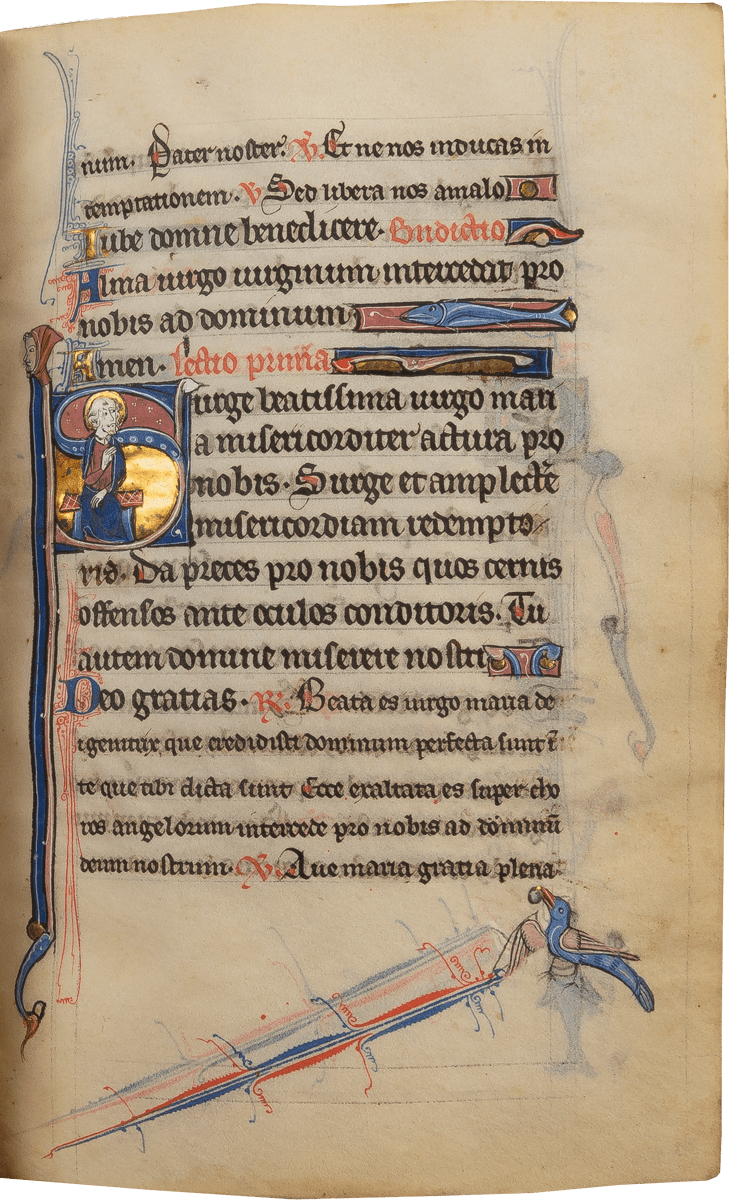 num. Pater noster. V. Et ne nos inducas in
temptationem. V Sed libera nos amalo
Iube domne benedicere. Bndictio
Alma uirgo uirginum intercedat pro
nobis ad dominum
Amen. lectio prima
Surge beatissima uirgo mari
a misericorditer actura pro
nobis. Surge et amplecte
misericordiam redempto
ris. Da preces pro nobis quos cernis
offensos ante oculos conditoris. Tu
autem domine miserere nostri
Deo gratias. R. Beata es uirgo maria de
i genitrix que credidisti dominum perfecta sunt ī
te que tibi dicta sunt Ecce exaltata es super cho
ros angelorum intercede pro nobis ad dominū
deum nostrum. V. Aue maria gratia plena